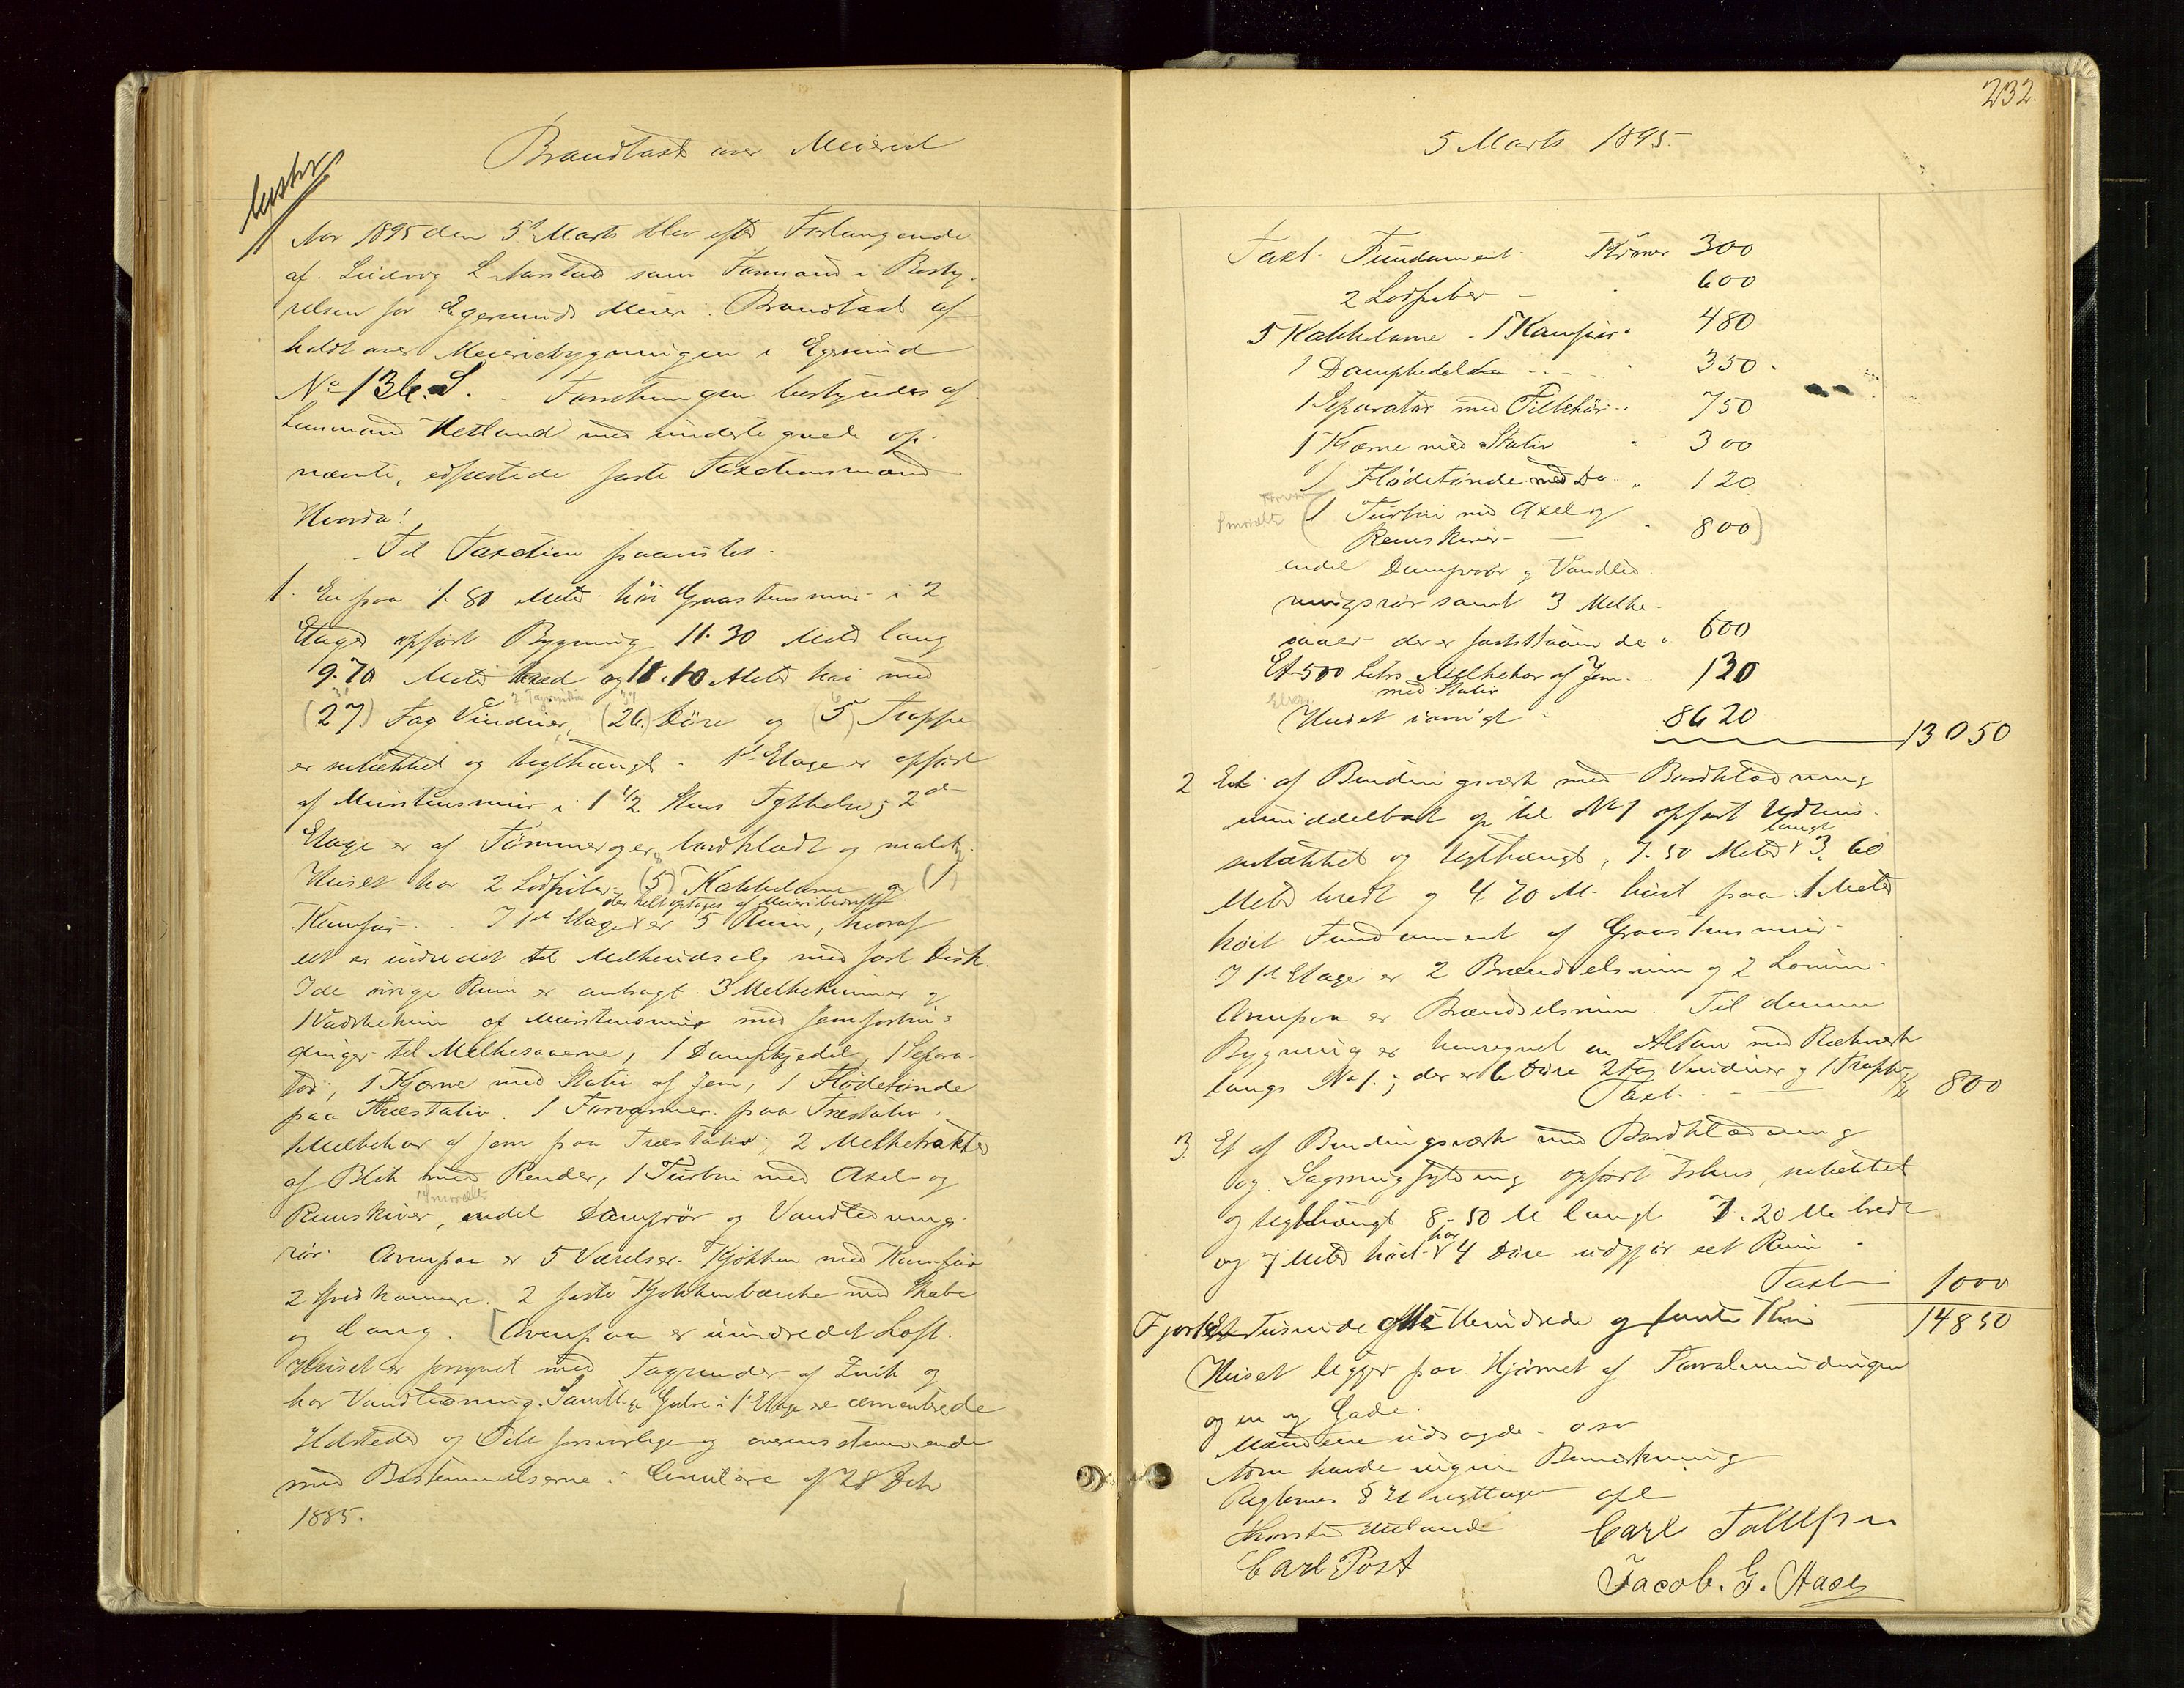 Brandtaxt over Meieriet
Aar 1895 den 5te Marts blev efter Forlangende
af Ludvig L Aarstad som Formand i Besty-
relsen for Egersunds Meieri Brandtaxt af-
holdt over Meieriebygningen i Egersund
No 136.S. Forretningen bestyrdes af
Lensmand Hetland med undertegnede op-
nævnte, edfæstede faste Taxationsmænd
Hvorda!
Til Taxation paavistes.
1. En paa 1.80 Meter høi Graastensmur i 2
Etager opført Bygning 11.30 Meter lang
9.70 Meter bred og 11.10 Meter høi med
(27) Fag Vinduer, (26) Døre og (5) Trappe
er seletækket og teglhængt. 1ste Etage er opført
af Murstensmur i 1 1/2 Stens Tykkelse; 2den
Etage er af Tømmer og er bordklædt og malet.
Huset har 2 Lodpiber (5) Kakkelovne og (1)
der helt optages af Meieribedrift
Komfur. I 1ste Etage er 5 Rum, hvoraf
eet er indredet til Melkeudsalg med fast Disk.
I de øvrige Rum er anbragt 3 Melkekummer og
1 Vadskekum af Murstensmur med Jernforbin-
dinger til Melkesaaerne, 1 Dampkjedel, 1 Separa-
tor, 1 Kjerne med Stativ af Jern, 1 Flødetønde
paa Træstativ. 1 Forvarmer paa Træstativ.
Melkekar af Jern paa Træstativ, 2 Melketrakter
af Blik med Render, 1 Turbin med Axel og
Remskiver, endel Damprør og Vandlednings-
rør. Ovenpaa er 5 Værelser. Kjøkken med Komfur
2 Spiskammere. 2 faste Kjøkkenbænke med Skabe
og Gang. [Ovenpaa er uindredet Loft.
Huset er forsynet med Tagrender af Zink og
har Vandledning. Samtlige Gulve i 1ste Etage er cementerede
Ildsteder og Piber forsvarlige og overensstemmende
med Bestemmelserne i Cirkulære af 28 Dcbr
1885.
232.
5 Marts 1895.
Taxt. Fundament Kroner 300
2 Lodpiber - 600
5 Kakkelovne. 1 Komfur. 480
1 Dampkedel 350.
1 Separator med Tilbehør 750
1 Kjerne med Stativ 300
1 Flødetønde med Do. 120
(1 Turbin med Axel og
Remskiver - 800)
endel Damprør og Vandled-
ningsrør samt 3 Melke-
saaer der er faststaaende 600
Et 500 Liters Melkekar af Jern 130
med Stativ
Huset iøvrigt 8620
13050
2 Et af Bindingsværk med Bordklædning
umiddelbart op til No 1 opført Udhus
langt
seletækket og teglhængt, 7.50 Meter 3.60
Meter bredt og 4.70 M. høit paa 1 Meter
høit Fundament af Graastensmur
I 1ste Etage er 2 Brændselsrum og 2 Lorum.
Ovenpaa er Brændselsrum. Til denne
Bygning er henregnet en Altan med Rækværk
langs No 1.; der er 6 Døre 2 Fag Vinduer og 1 Trappe
Taxt. 800
3 Et af Bindingsværk med Bordklædning
og Sagmugfyldning opført Ishus, seletækket
og teglhængt 8.50 M langt 7.20 M. bredt
har
og 7 Meter høit 4 Døre udgjør eet Rum.
Taxt 1000
Fjorten Tusinde otte Hundrede og femti Kr 14850
Huset ligger paa Hjørnet af
og en ny Gade.
Mændene udsagde osv
som havde ingen Bemærkning
Reglernes § 21 iagttagen
Carl Tollefsen
Carl Post
Jacob. G. Haae